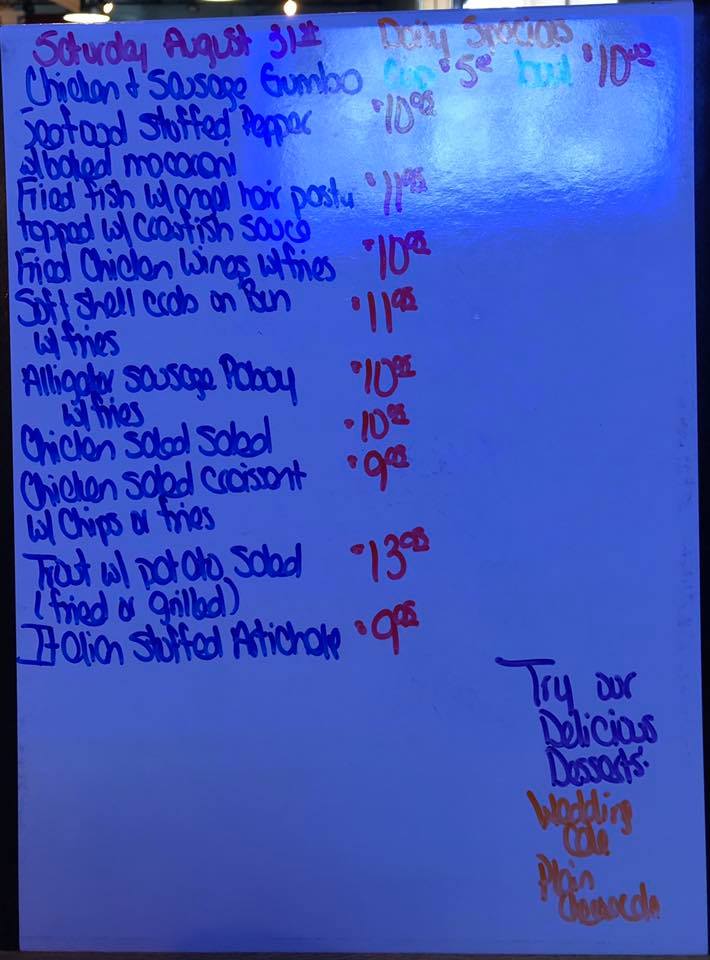 Saturday August 31st Daily Specials
Chicken & Sausage Gumbo Cup $5 bowl $10
Seafood Stuffed Pepper $10.95
w/baked macaroni
Fried fish w/angel hair pasta $11.95
topped w/ Crawfish sauce
Fried Chicken Wings w/fries $10.95
Soft shell crab on Bun $11.95
w/ fries
Alligator sausage Poboy $10.95
w/ fries
Chicken Salad Salad $10.95
Chicken salad Croissant $9.95
w/ Chips or fries
Trout w/ potato Salad $13.95
(fried or grilled)
Italian Stuffed Artichoke $9.95
Try our
Delicious
Desserts.
Wedding
Cake
Plain
Cheesecake